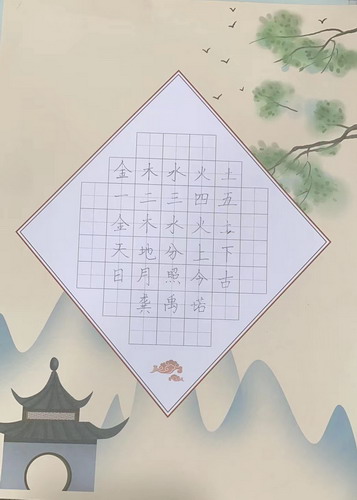 金木水火土
一二三四五
金木水火土
天地分上下
日月照今古
龚禹诺